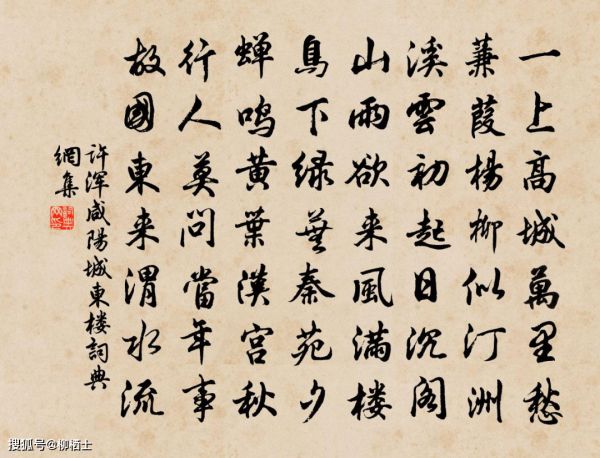 一上高城萬里愁
蒹葭楊柳似汀洲
溪雲初起日沉閣
山雨欲来風滿楼
鳥下绿蕪秦苑夕
蝉鸣黄葉漢宫秋
行人莫问當年事
故國東来渭水流
许浑咸陽城東楼詞典
網集
搜狐号@柳栖士